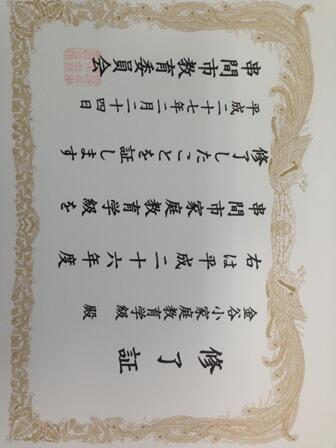 修了証
金谷小家庭教育学級 殿
右は平成二十六年度
串間市家庭教育学級を
修了したことを証します
平成二十七年二月二十四日
串間市教育委員会